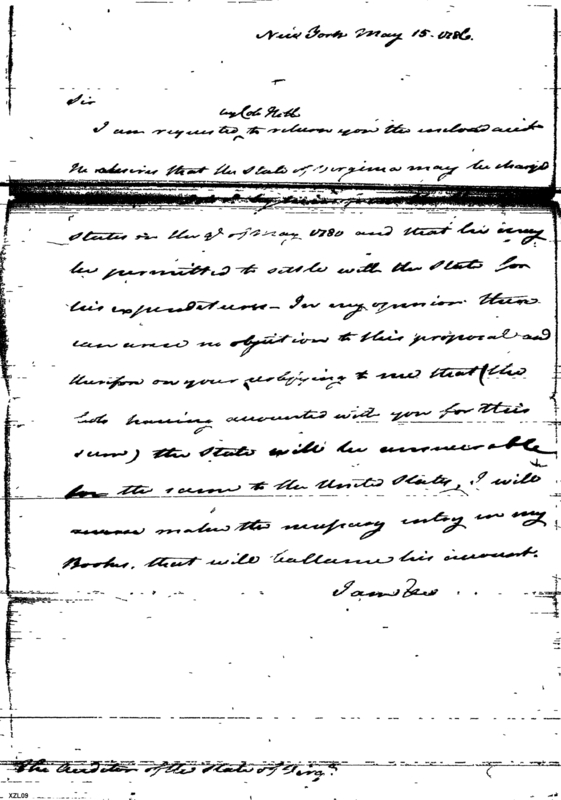 New York May 15. 1786.
Sir
by Colo Heth
I am requested to return you the inclosed acct
He desires that the State of Virginia may be charged
by
States on the 9th of May 1780 and that he may
be permitted to settle with the State for
his expenditures – In my opinion there
can arise no objection to this proposal and
therefore on your certifying to me that (the
Colo having accounted with you for this
sum) the State will be answerable
for the same to the United States, I will
make the necessary entry in my
Books, that will ballance his account.
I am &c
The Auditor of the State of Virga
XZL09